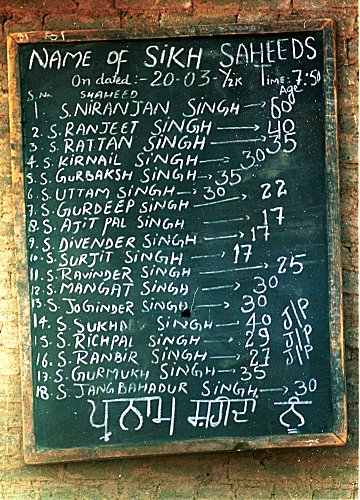 NAME OF SIKH SAHEEDS
On dated:- 20-03-Y2K Time: 7:50
S.No SHAHEED Age
1. S. NIRANJAN SINGH → 60
2. S. RANJEET SINGH → 40
3. S. RATTAN SINGH → 35
4. S. KIRNAIL SINGH → 30
5. S. GURBAKSH SINGH → 35
6. S. UTTAM SINGH → 30
7. S. GURDEEP SINGH → 22
8. S. AJIT PAL SINGH → 17
9. S. DIVENDER SINGH → 17
10. S. SURJIT SINGH → 17
11. S. RAVINDER SINGH → 25
12. S. MANGAT SINGH → 30
13. S. JOGINDER SINGH → 30
14. S SUKHA SINGH → 40 J/P
15. S. RICHPAL SINGH → 29 J/P
16. S. RANBIR SINGH → 27 J/P
17. S. GURMUKH SINGH → 35
18. S. JANGBAHADUR SINGH → 30
ਪ੍ਰਨਾਮ ਸ਼ਹੀਦਾਂ ਨੂੰ